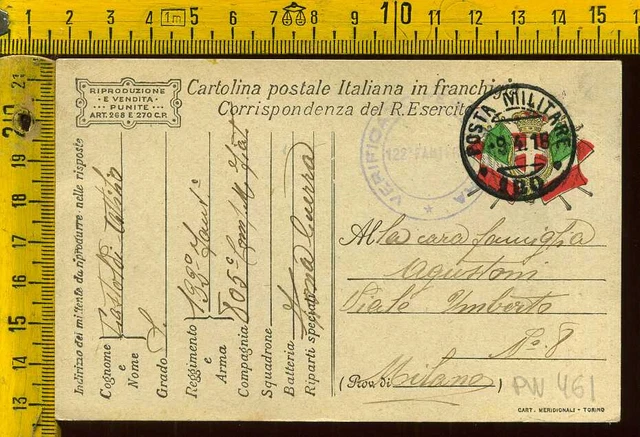 RIPRODUZIONE
E VENDITA
PUNITE
ART. 268 E 270 C.P.
Cartolina postale Italiana in franchigia
Corrispondenza del R. Esercito
POSTA MILITARE
9 18
VERIFICA
122
Alla cara famiglia
Agustoni
Viale Umberto
No. 8
(Prov. di Milano)
PW 461
CART. MERIDIONALI - TORINO
Indirizzo del mittente da riprodurre nelle risposte
Cognome
e
Nome
Grado S.
Reggimento 133º
e
Arma
Compagnia 805º Comp. M. Fiat
Squadrone
Batteria
Riparti speciali Zona Guerra
1m
1 2 3 4 5 6 7 8 9 10 11 12 13 14 15
21
20
19
18
17
16
15
14
13